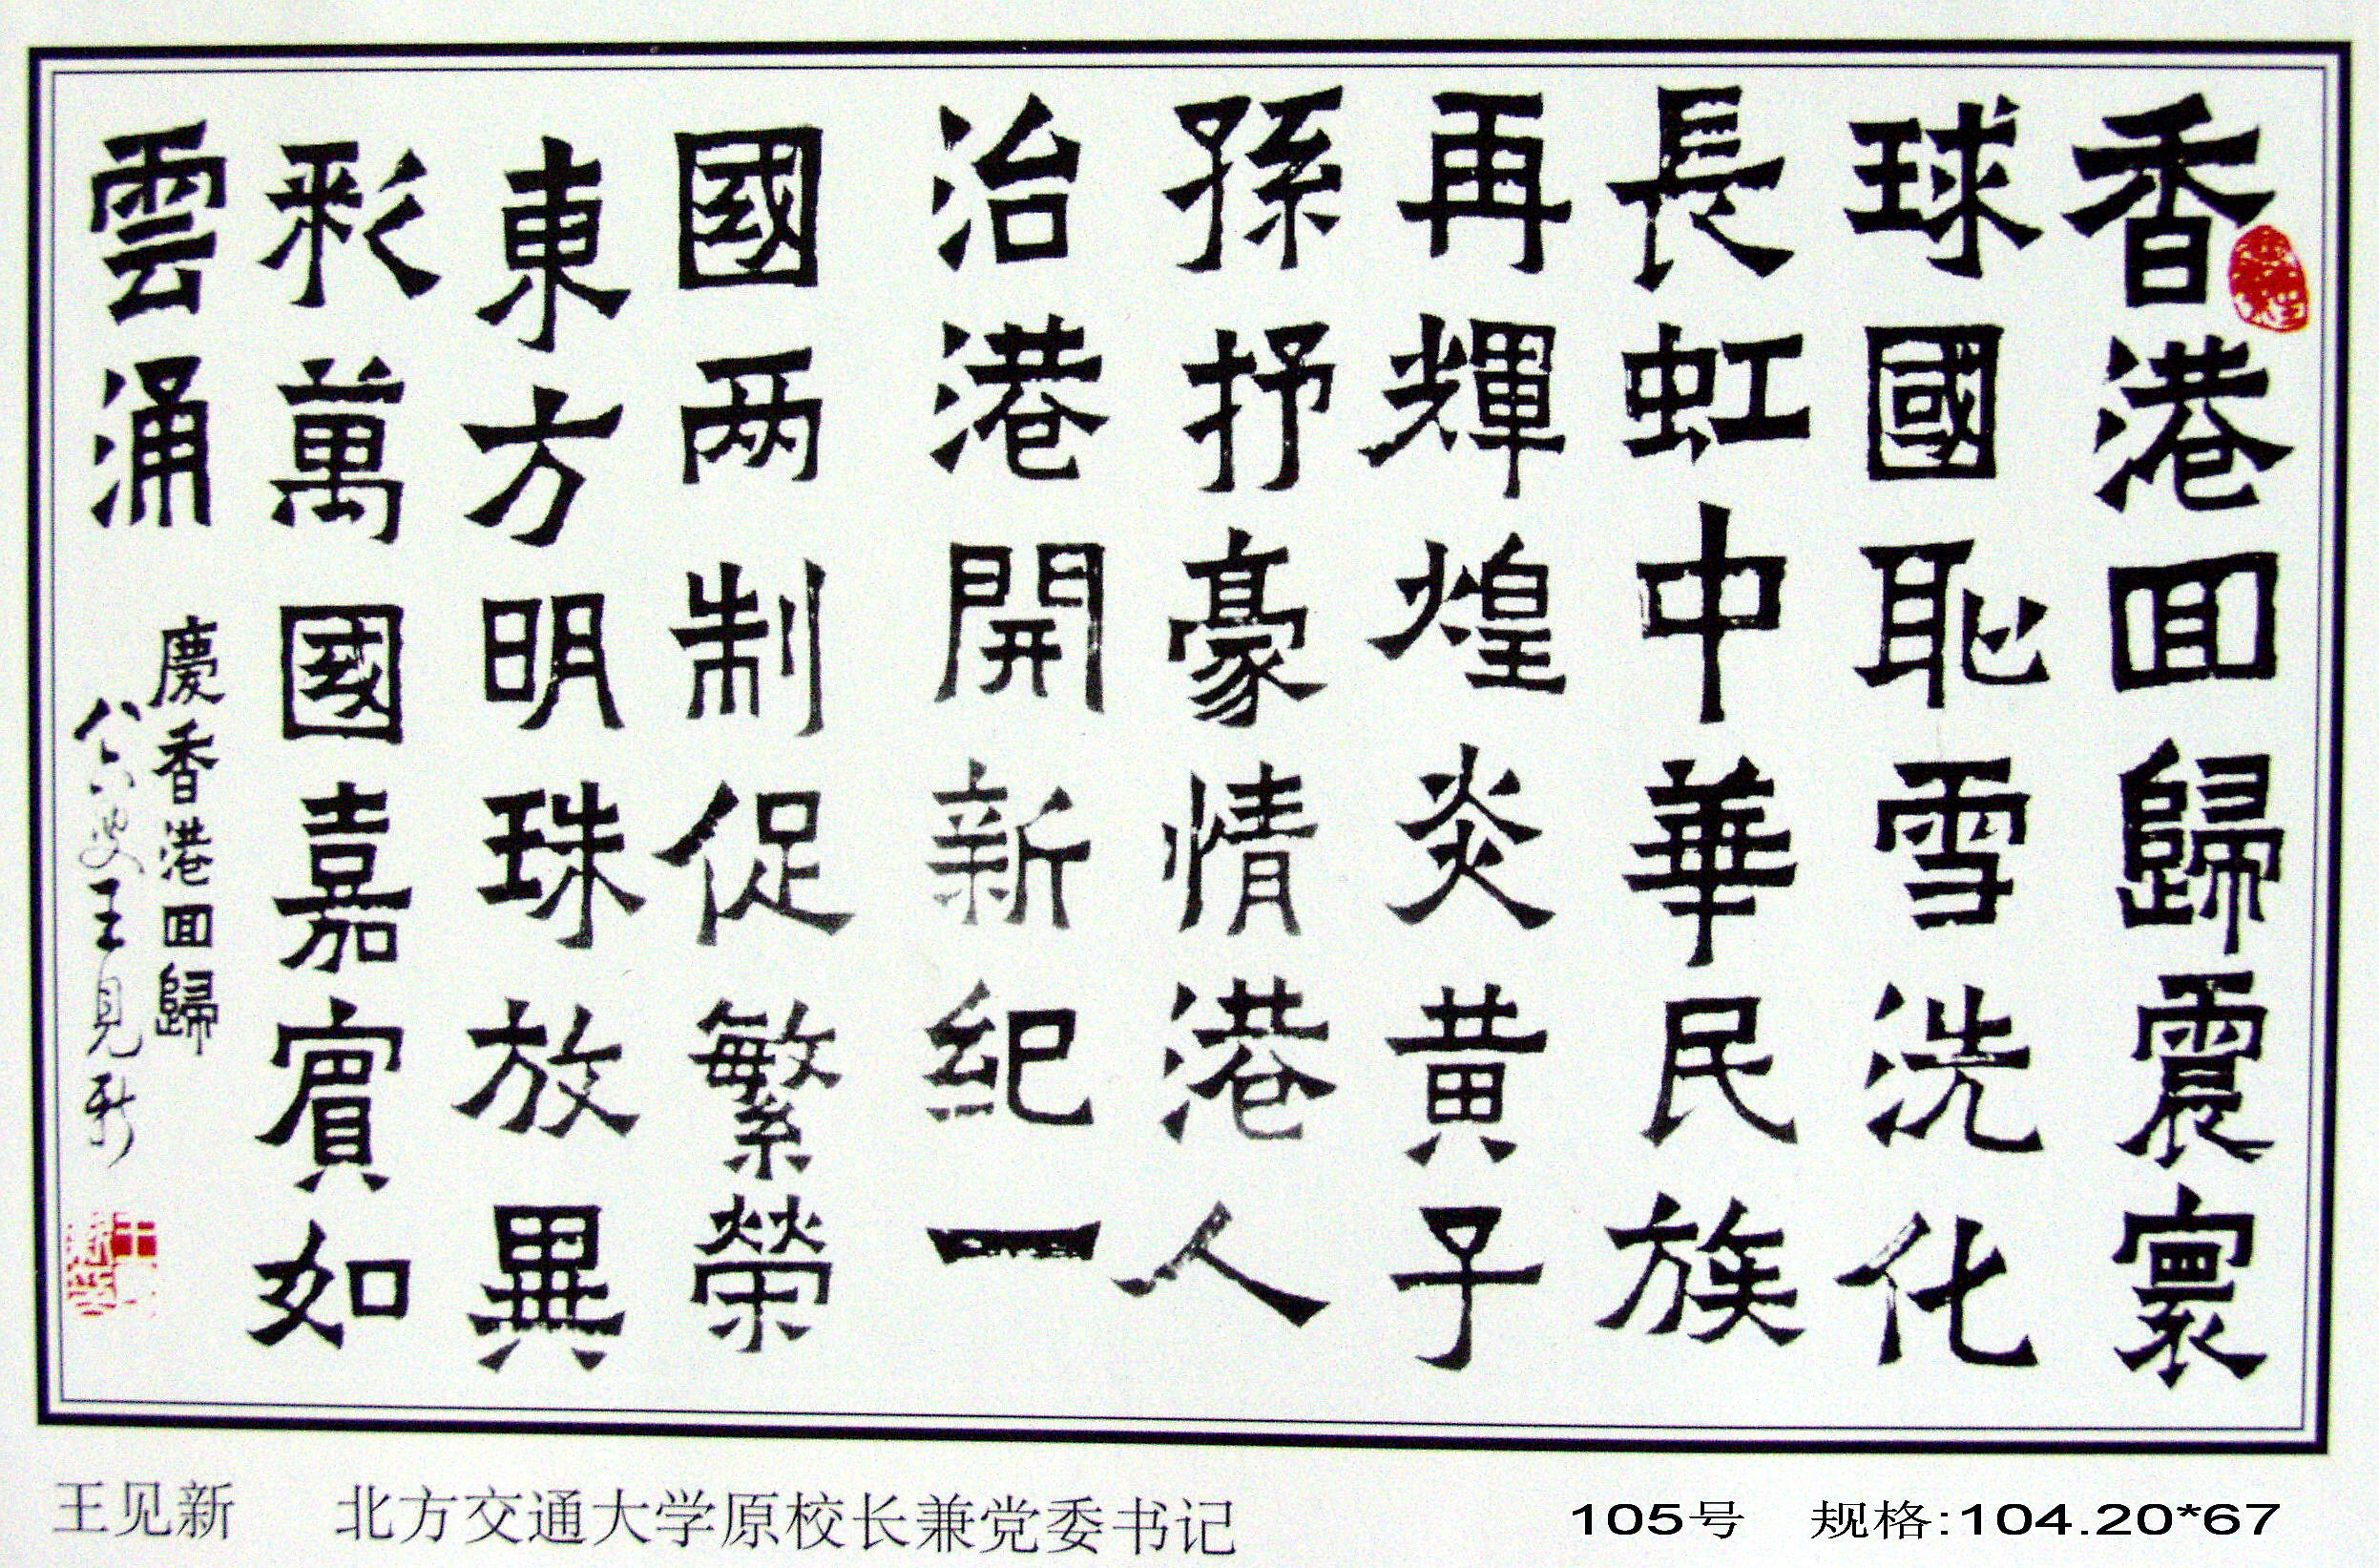 香港回歸震寰
球國恥雪洗化
長虹中華民族
再輝煌炎黃子
孫抒豪情港人
治港開新紀一
國两制促繁榮
東方明珠放異
彩萬國嘉賓如
雲涌
慶香港回歸
八六叟王見新
王见新 北方交通大学原校长兼党委书记
105号 规格:104.20*67